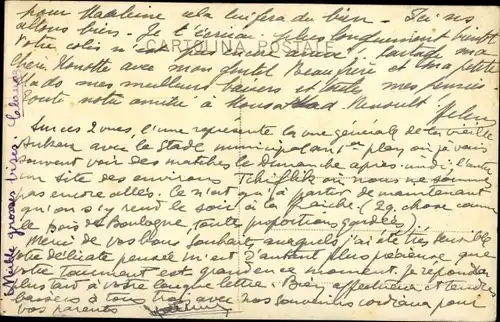 pour Madeleine cela lui fera du bien. Ici ns
allons bien. Je t'écrirai plus longuement bientôt
CARTOLINA POSTALE
Votre colis n'est pas encore arrivé. Partage ma
chère Nonotte avec mon gentil Beaufrère et ma petite
Mado mes meilleurs baisers et toutes mes pensées
toute notre amitié à Monsr Mad. Renoult.
Sur ces 2 vues, l'une représente la vue générale de la vieille
avec le Stade municipal au 1er plan où je vais
souvent voir des matches le dimanche après-midi. L'autre
un site des environs Tchiflik où nous ne sommes
pas encore allés. Ce n'est qu'à partir de maintenant
qu'on s'y rend le soir à la fraîche (2g. chose comme
le Bois de Boulogne, toute proportions gardées).
Merci de vos bons souhaits auxquels j'ai été très sensible
Votre délicate pensée m'est d'autant plus précieuse que
votre tourment est grand en ce moment. Je répondrai
plus tard à votre longue lettre. Bien affectueux et tendres
baisers à tous trois avec nos souvenirs cordiaux pour
vos parents
Mille grosses bises. Claude